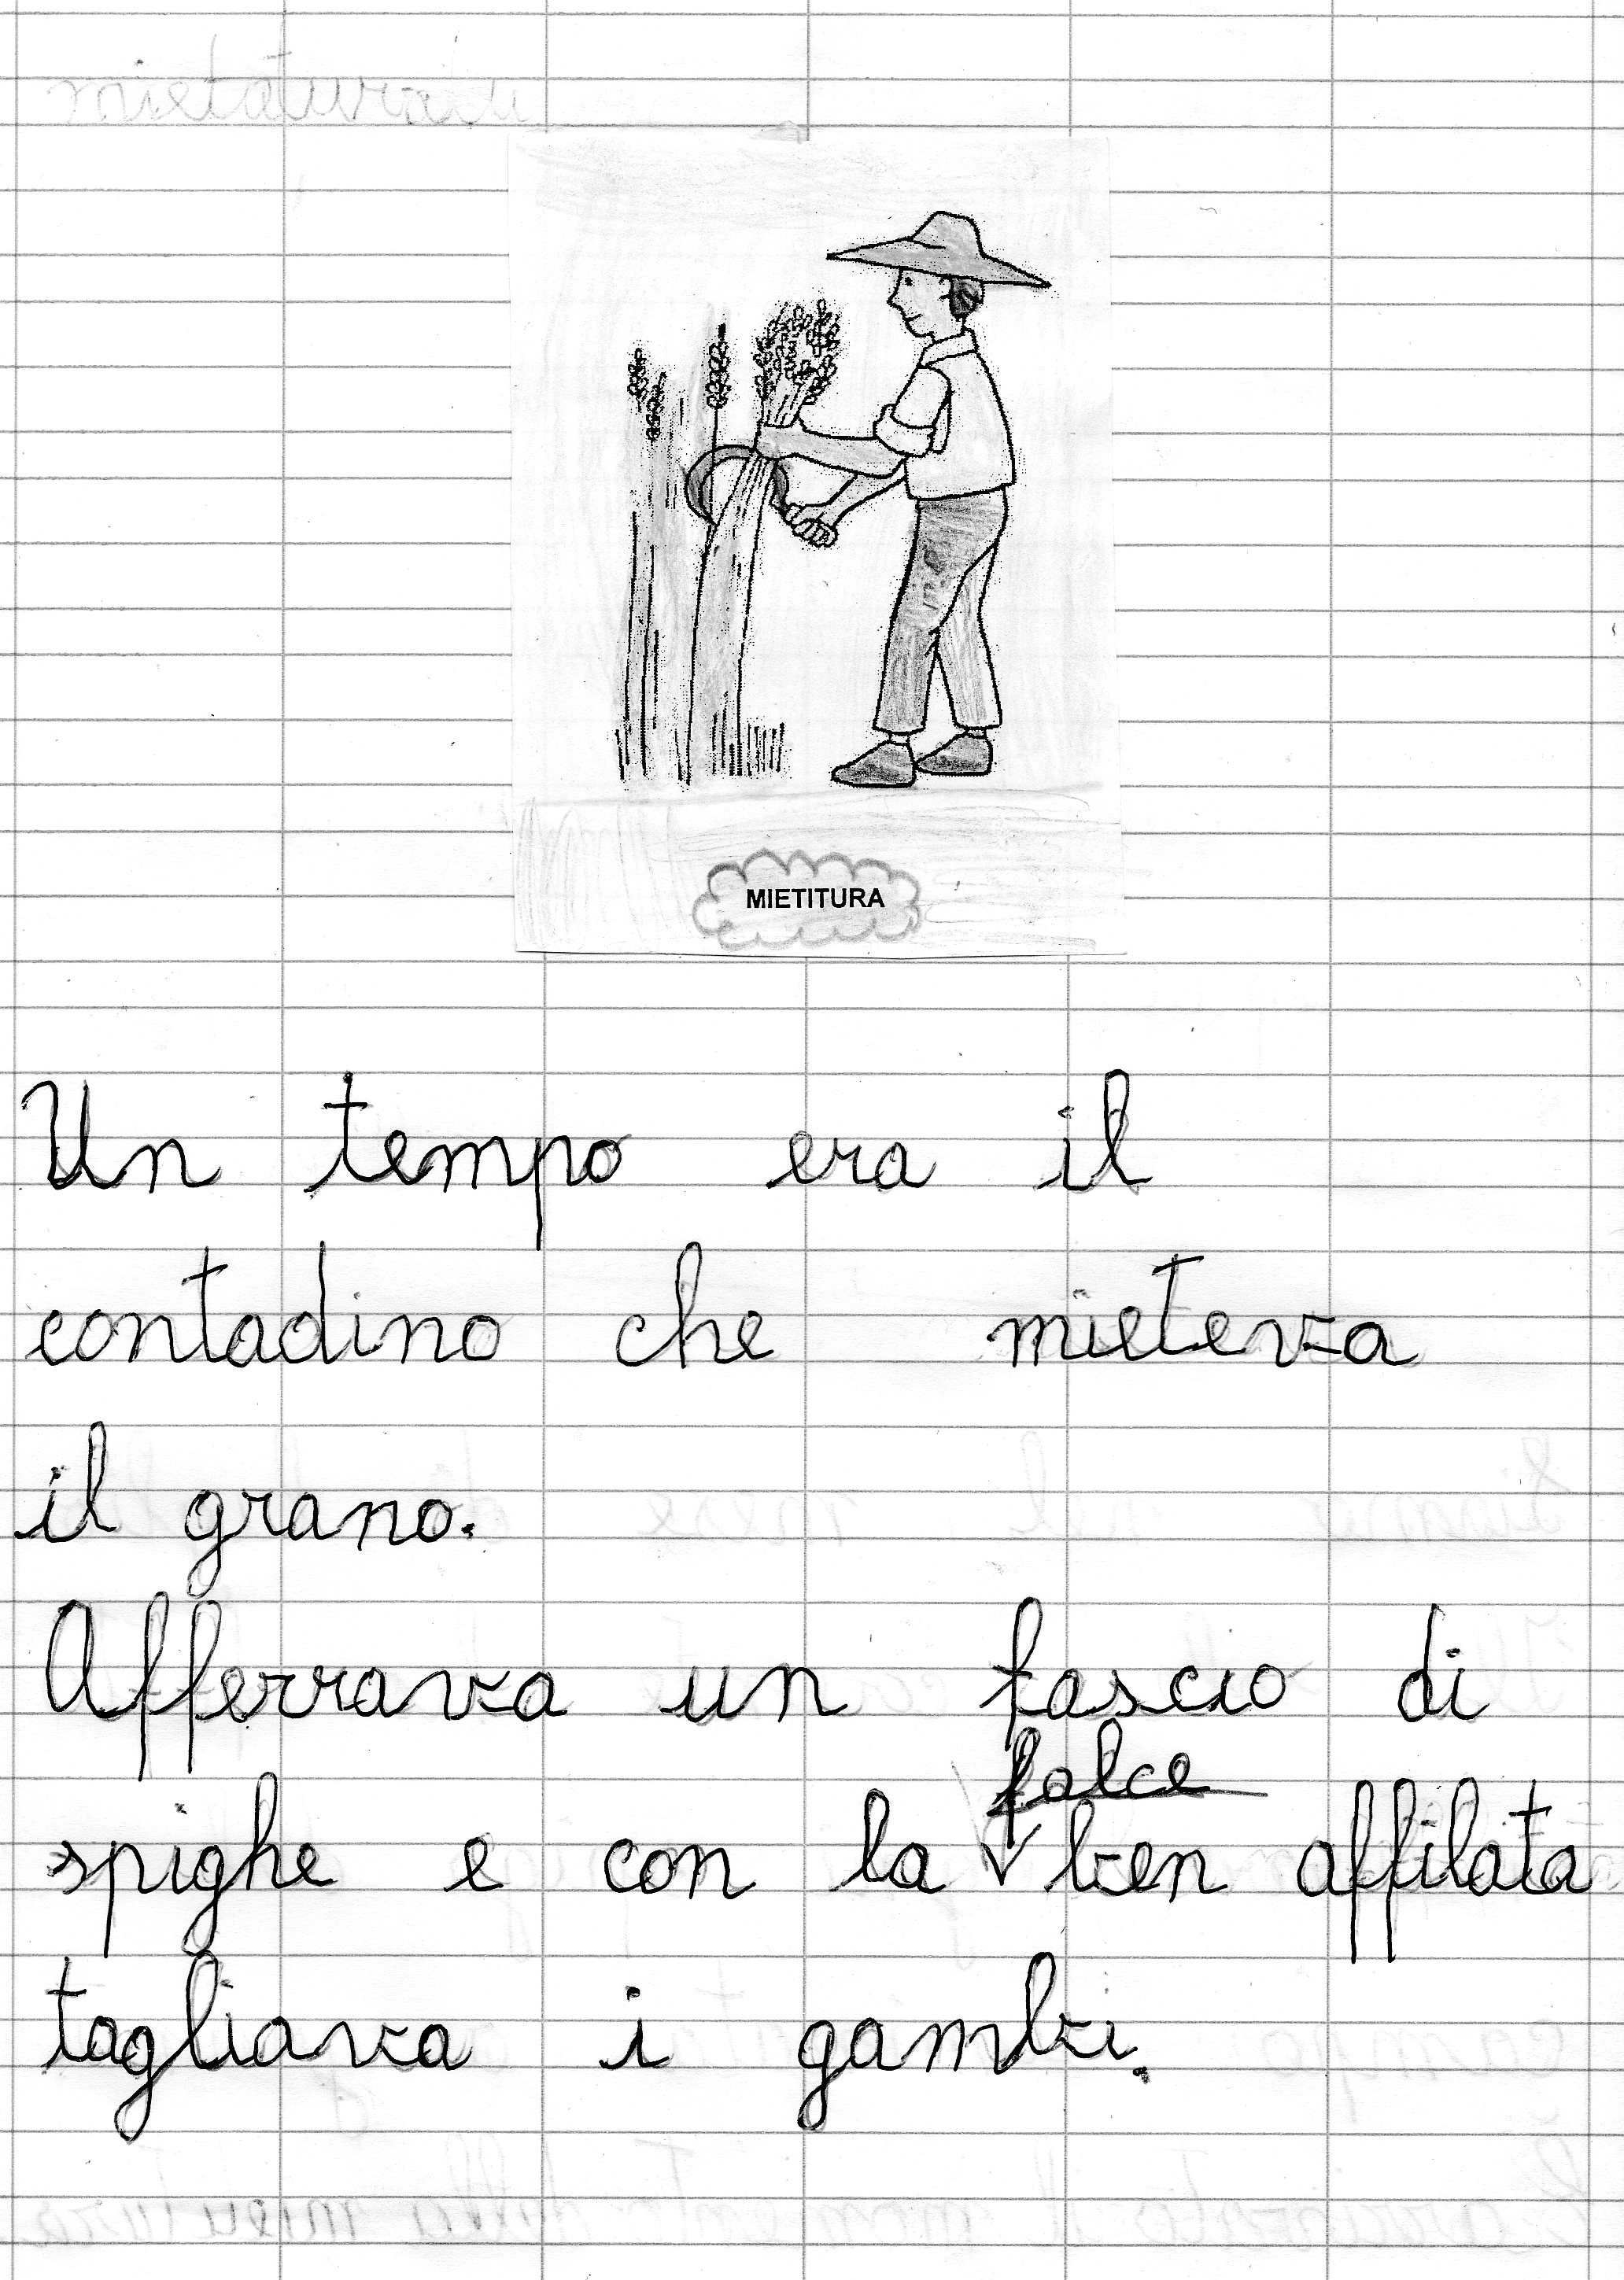 MIETITURA
Un tempo era il
contadino che mieteva
il grano.
Afferrava un fascio di
falce
spighe e con la ben affilata
tagliava i gambi.